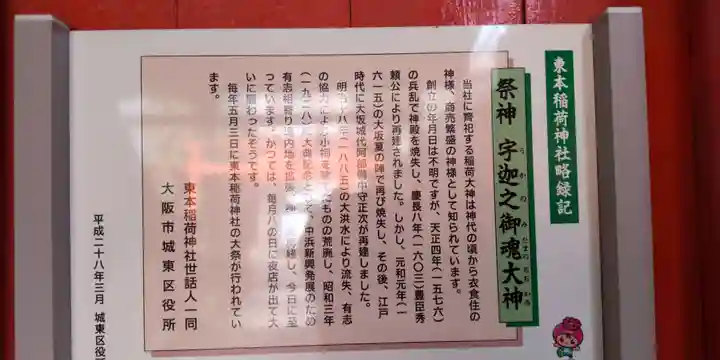 東本稲荷神社略録記
祭神 宇迦之御魂大神
うかのみたまのおおかみ
当社に齊祀する稲荷大神は神代の頃から衣食住の
神様、商売繁盛の神様として知られています。
創立の年月日は不明ですが、天正四年(一五七六)
の兵乱で神殿を焼失し、慶長八年(一六〇三)豊臣秀
頼公により再建されました。しかし、元和元年(一
六一五)の大坂夏の陣で再び焼失し、その後、江戸
時代に大坂城代阿部備中守正次が再建しました。
明治十八年(一八八五)の大洪水により流失、有志
の協力により小祠を
たものの荒廃し、昭和三年
(一九二八)
大典記念として、中浜新興発展のため
有志相寄り境内地を拡張、
修し、今日に至
っています。かつては、毎月八の日に夜店が出て大
いに賑わったそうです。
毎年五月三日に東本稲荷神社の大祭が行われてい
ます。
東本稲荷神社世話人一同
大阪市城東区役所
平成二十八年三月 城東区役